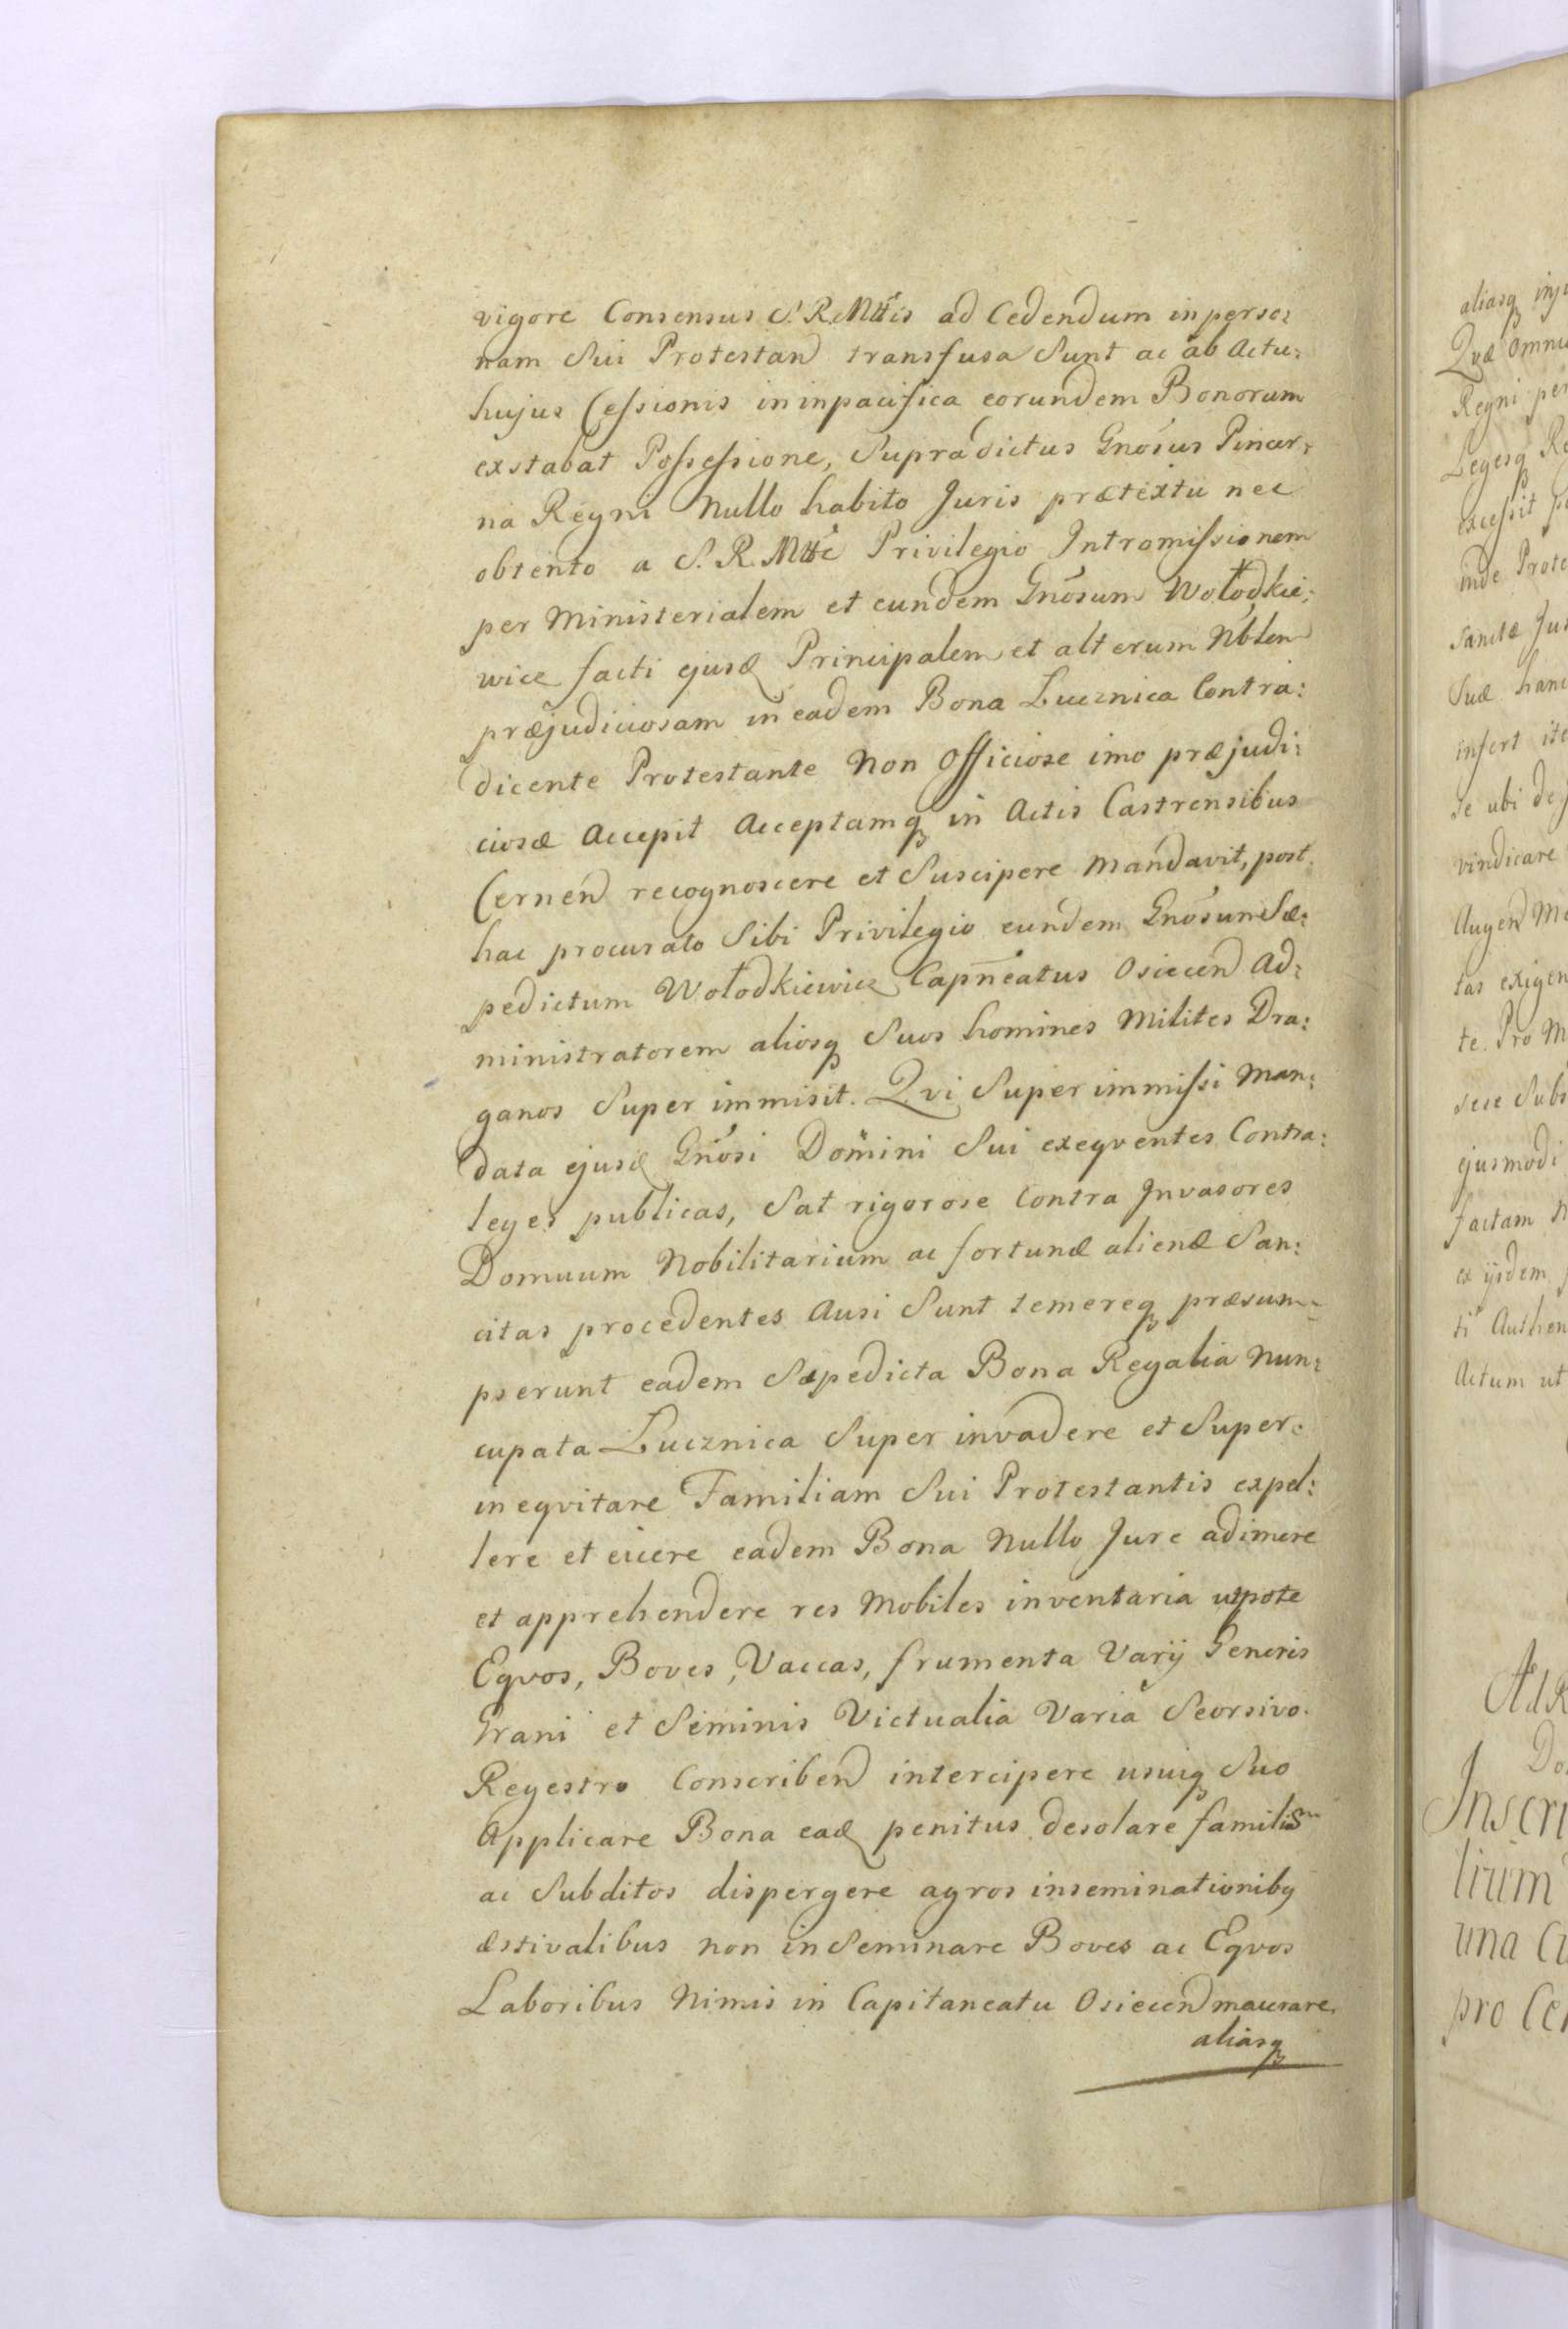 vigore Consensus S. R. Mttis ad Cedendum in perso:
nam Sui Protestand transfusa Sunt ac ab Actu:
hujus Cessionis in inpacifica eorundem Bonorum
exstabat Possessione, Supradictus Gnosus Pincer:
na Regni Nullo habito Juris prætextu nec
obtento a S. R. Mtte Privilegio Intromissionem
per Ministerialem et eundem Gnosum Wołodkie:
wice facti ejusd Principalem et alterum Nblem
præjudiciosam in eadem Bona Lucznica Contra:
dicente Protestante Non Officiose imo præjudi:
ciosæ Accepit Acceptamq in Actis Castrensibus
Cernen recognoscere et Suscipere Mandavit, post
hac procurato Sibi Privilegio eundem Gnosum Sæ:
pedictum Wołodkiewicz Capneatus Osiecen Ad:
ministratorem aliosq Suos homines Milites Dra:
ganos Super immisit. Qvi Super immissi Man:
data ejusd Gnosi Domini Sui exeqventes Contra:
leges publicas, Sat rigorose Contra Invasores
Domuum Nobilitarium ac fortunæ alienæ San:
citas procedentes Ausi Sunt temereq præsum:
pserunt eadem Sæpedicta Bona Regalia Nun:
cupata Lucznica Super invadere et Super:
in eqvitare Familiam Sui Protestantis expel:
lere et eicere eadem Bona Nullo Jure adimere
et apprehendere res Mobiles inventaria utpote
Eqvos, Boves, Vaccas, frumenta Varij Generis
Grani et Seminis Victualia Varia Seorsivo
Regestro Conscriben intercipere usuiq Suo
Applicare Bona ead penitus desolare familiam
ac Subditos dispergere agros inseminationibq
æstivalibus non in Seminare Boves ac Eqvos
Laboribus Nimis in Capitaneatu Osiecen macerare
aliasq
aliasq
Qvæ Omni
Regni per
Legesq
excessit
inde Prote
Sanctæ Jus
Suæ hanc
infert ite
se ubi de
vindicare
Augen Me
tas exigen
te. Pro M
sece Subs
ejusmodi
factam
ex ijsdem
ti Authen
Actum ut
Inscri
lium
una
pro Cer